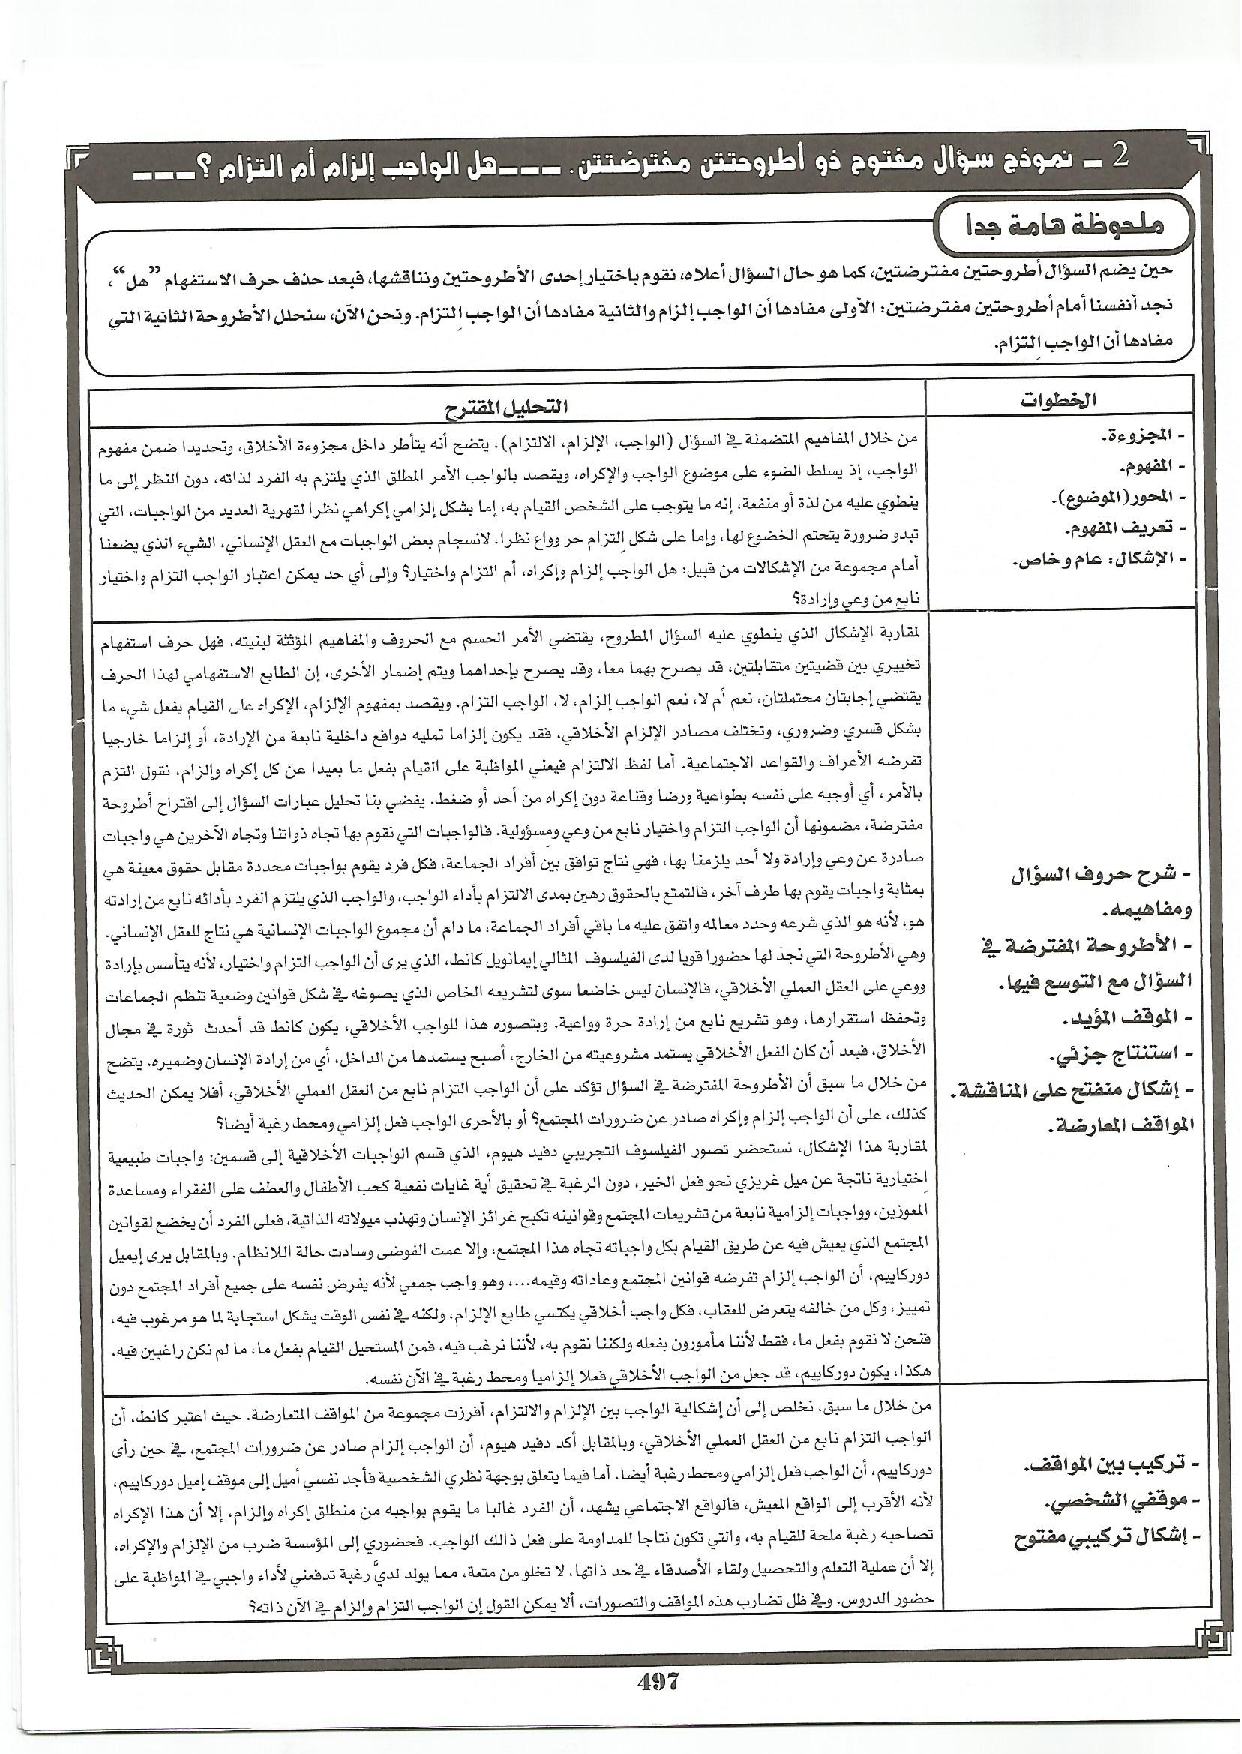 2 ـ نموذج سؤال مفتوح ذو أطروحتتن مفترضتتن. ـــ ـــ ـــ هل الواجب إلزام أم التزام ؟ ـــ ـــ ـــ
ملحوظة هامة جدا
حين يضم السؤال أطروحتين مفترضتين، كما هو حال السؤال أعلاه، نقوم باختيار إحدى الأطروحتين ونناقشها، فبعد حذف حرف الاستفهام ”هل“،
نجد أنفسنا أمام أطروحتين مفترضتين: الأولى مفادها أن الواجب إلزام والثانية مفادها أن الواجب اِلتزام. ونحن الآن، سنحلل الأطروحة الثانية التي
مفادها أن الواجب اِلتزام.
الخطوات
التحليل المقترح
- المجزوءة.
- المفهوم.
- المحور(الموضوع).
- تعريف المفهوم.
- الإشكال: عام وخاص.
من خلال المفاهيم المتضمنة في السؤال (الواجب، الإلزام، الالتزام). يتضح أنه يتأطر داخل مجزوءة الأخلاق، وتحديدا ضمن مفهوم
الواجب، إذ يسلط الضوء على موضوع الواجب والإكراه، ويقصد بالواجب الأمر المطلق الذي يلتزم به الفرد لذاته، دون النظر إلى ما
ينطوي عليه من لذة أو منفعة، إنه ما يتوجب على الشخص القيام به، إما بشكل إلزامي إكراهي نظرا لقهرية العديد من الواجبات، التي
تبدو ضرورة يتحتم الخضوع لها، وإما على شكل اِلتزام حر وواع نظرا. لانسجام بعض الواجبات مع العقل الإنساني، الشيء الذي يضعنا
أمام مجموعة من الإشكالات من قبيل: هل الواجب إلزام وإكراه، أم التزام واختيار؟ وإلى أي حد يمكن اعتبار الواجب التزام واختيار
نابع من وعي وإرادة؟
- شرح حروف السؤال
ومفاهيمه.
- الأطروحة المفترضة في
السؤال مع التوسع فيها.
- الموقف المؤيد.
- استنتاج جزئي.
- إشكال منفتح على المناقشة.
المواقف المعارضة.
لمقاربة الإشكال الذي ينطوي عليه السؤال المطروح، يقتضي الأمر الحسم مع الحروف والمفاهيم المؤثثة لبنيته. فهل حرف استفهام
تخييري بين قضيتين متقابلتين، قد يصرح بهما معا، وقد يصرح بإحداهما ويتم إضمار الأخرى، إن الطابع الاستفهامي لهذا الحرف
يقتضي إجابتان محتملتان، نعم أم لا، نعم الواجب إلزام، لا، الواجب التزام. ويقصد بمفهوم الإلزام، الإكراه على القيام بفعل شيء ما
بشكل قسري وضروري، وتختلف مصادر الإلزام الأخلاقي، فقد يكون إلزاما تمليه دوافع داخلية نابعة من الإرادة، أو إلزاما خارجيا
تفرضه الأعراف والقواعد الاجتماعية. أما لفظ الالتزام فيعني المواظبة على القيام بفعل ما بعيدا عن كل إكراه وإلزام، نقول التزم
بالأمر، أي أوجبه على نفسه بطواعية ورضا وقناعة دون إكراه من أحد أو ضغط. يفضي بنا تحليل عبارات السؤال إلى اقتراح أطروحة
مفترضة، مضمونها أن الواجب التزام واختيار نابع من وعي ومسؤولية. فالواجبات التي نقوم بها تجاه ذواتنا وتجاه الآخرين هي واجبات
صادرة عن وعي وإرادة ولا أحد يلزمنا بها، فهي نتاج توافق بين أفراد الجماعة، فكل فرد يقوم بواجبات محددة مقابل حقوق معينة هي
بمثابة واجبات يقوم بها طرف آخر، فالتمتع بالحقوق رهين بمدى الالتزام بأداء الواجب، والواجب الذي يلتزم الفرد بأدائه نابع من إرادته
هو، لأنه هو الذي شرعه وحدد معالمه واتفق عليه ما باقي أفراد الجماعة، ما دام أن مجموع الواجبات الإنسانية هي نتاج للعقل الإنساني.
وهي الأطروحة التي نجد لها حضورا قويا لدى الفيلسوف المثالي إيمانويل كانط، الذي يرى أن الواجب التزام واختيار، لأنه يتأسس بإرادة
ووعي على العقل العملي الأخلاقي، فالإنسان ليس خاضعا سوى لتشريعه الخاص الذي يصوغه في شكل قوانين وضعية تنظم الجماعات
وتحفظ استقرارها، وهو تشريع نابع من إرادة حرة وواعية. وبتصوره هذا للواجب الأخلاقي، يكون كانط قد أحدث ثورة في مجال
الأخلاق، فبعد أن كان الفعل الأخلاقي يستمد مشروعيته من الخارج، أصبح يستمدها من الداخل، أي من إرادة الإنسان وضميره. يتضح
من خلال ما سبق أن الأطروحة المفترضة في السؤال تؤكد على أن الواجب التزام نابع من العقل العملي الأخلاقي، أفلا يمكن الحديث
كذلك، على أن الواجب إلزام وإكراه صادر عن ضرورات المجتمع؟ أو بالأحرى الواجب فعل إلزامي ومحط رغبة أيضا؟
لمقاربة هذا الإشكال، نستحضر تصور الفيلسوف التجريبي دفيد هيوم، الذي قسم الواجبات الأخلاقية إلى قسمين: واجبات طبيعية
اِختيارية ناتجة عن ميل غريزي نحو فعل الخير، دون الرغبة في تحقيق أية غايات نفعية كحب الأطفال والعطف على الفقراء ومساعدة
المعوزين، وواجبات إلزامية نابعة من تشريعات المجتمع وقوانينه تكبح غرائز الإنسان وتهذب ميولاته الذاتية، فعلى الفرد أن يخضع لقوانين
المجتمع الذي يعيش فيه عن طريق القيام بكل واجباته تجاه هذا المجتمع، وإلا عمت الفوضى وسادت حالة اللانظام. وبالمقابل يرى إيميل
دوركايم، أن الواجب إلزام تفرضه قوانين المجتمع وعاداته وقيمه...، وهو واجب جمعي لأنه يفرض نفسه على جميع أفراد المجتمع دون
تمييز، وكل من خالفه يتعرض للعقاب، فكل واجب أخلاقي يكتسي طابع الإلزام، ولكنه في نفس الوقت يشكل استجابة لما هو مرغوب فيه،
فنحن لا نقوم بفعل ما، فقط لأننا مأمورون بفعله ولكننا نقوم به، لأننا نرغب فيه، فمن المستحيل القيام بفعل ما، ما لم نكن راغبين فيه.
هكذا، يكون دوركايم، قد جعل من الواجب الأخلاقي فعلا إلزاميا ومحط رغبة في الآن نفسه.
- تركيب بين المواقف.
- موقفي الشخصي.
- إشكال تركيبي مفتوح
من خلال ما سبق. نخلص إلى أن إشكالية الواجب بين الإلزام والالتزام، أفرزت مجموعة من المواقف المتعارضة. حيث اعتبر كانط، أن
الواجب التزام نابع من العقل العملي الأخلاقي، وبالمقابل أكد دفيد هيوم، أن الواجب إلزام صادر عن ضرورات المجتمع، في حين رأى
دوركايم، أن الواجب فعل إلزامي ومحط رغبة أيضا. أما فيما يتعلق بوجهة نظري الشخصية فأجد نفسي أميل إلى موقف إميل دوركايم،
لأنه الأقرب إلى الواقع المعيش، فالواقع الاجتماعي يشهد، أن الفرد غالبا ما يقوم بواجبه من منطلق إكراه وإلزام، إلا أن هذا الإكراه
تصاحبه رغبة ملحة للقيام به، والتي تكون نتاجا للمداومة على فعل ذالك الواجب. فحضوري إلى المؤسسة ضرب من الإلزام والإكراه،
إلا أن عملية التعلم والتحصيل ولقاء الأصدقاء في حد ذاتها، لا تخلو من متعة، مما يولد لديَّ رغبة تدفعني لأداء واجبي في المواظبة على
حضور الدروس. وفي ظل تضارب هذه المواقف والتصورات، ألا يمكن القول إن الواجب التزام وإلزام في الآن ذاته؟
497